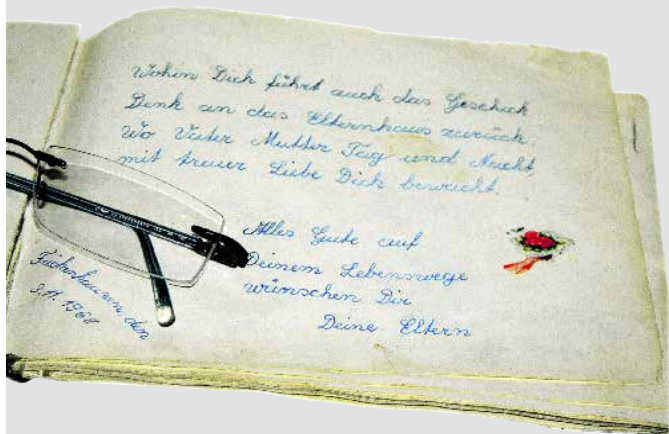 Wohin Dich führt auch das Geschick
Denk an das Elternhaus zurück,
Wo Vater Mutter Tag und Nacht,
mit treuer Liebe Dich bewacht.
Alles Gute auf
Deinem Lebenswege
wünschen Dir
Deine Eltern
den
3.11.1968